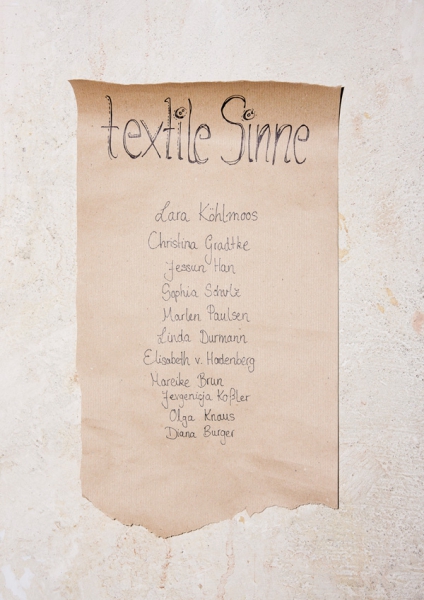 textile Sinne
Lara Köhlmoos
Christina Gradtke
Jessun Han
Sophia Schulz
Marlen Paulsen
Linda Dürmann
Elisabeth v. Hodenberg
Mareike Brun
Jevgenija Koßler
Olga Knaus
Diana Burger